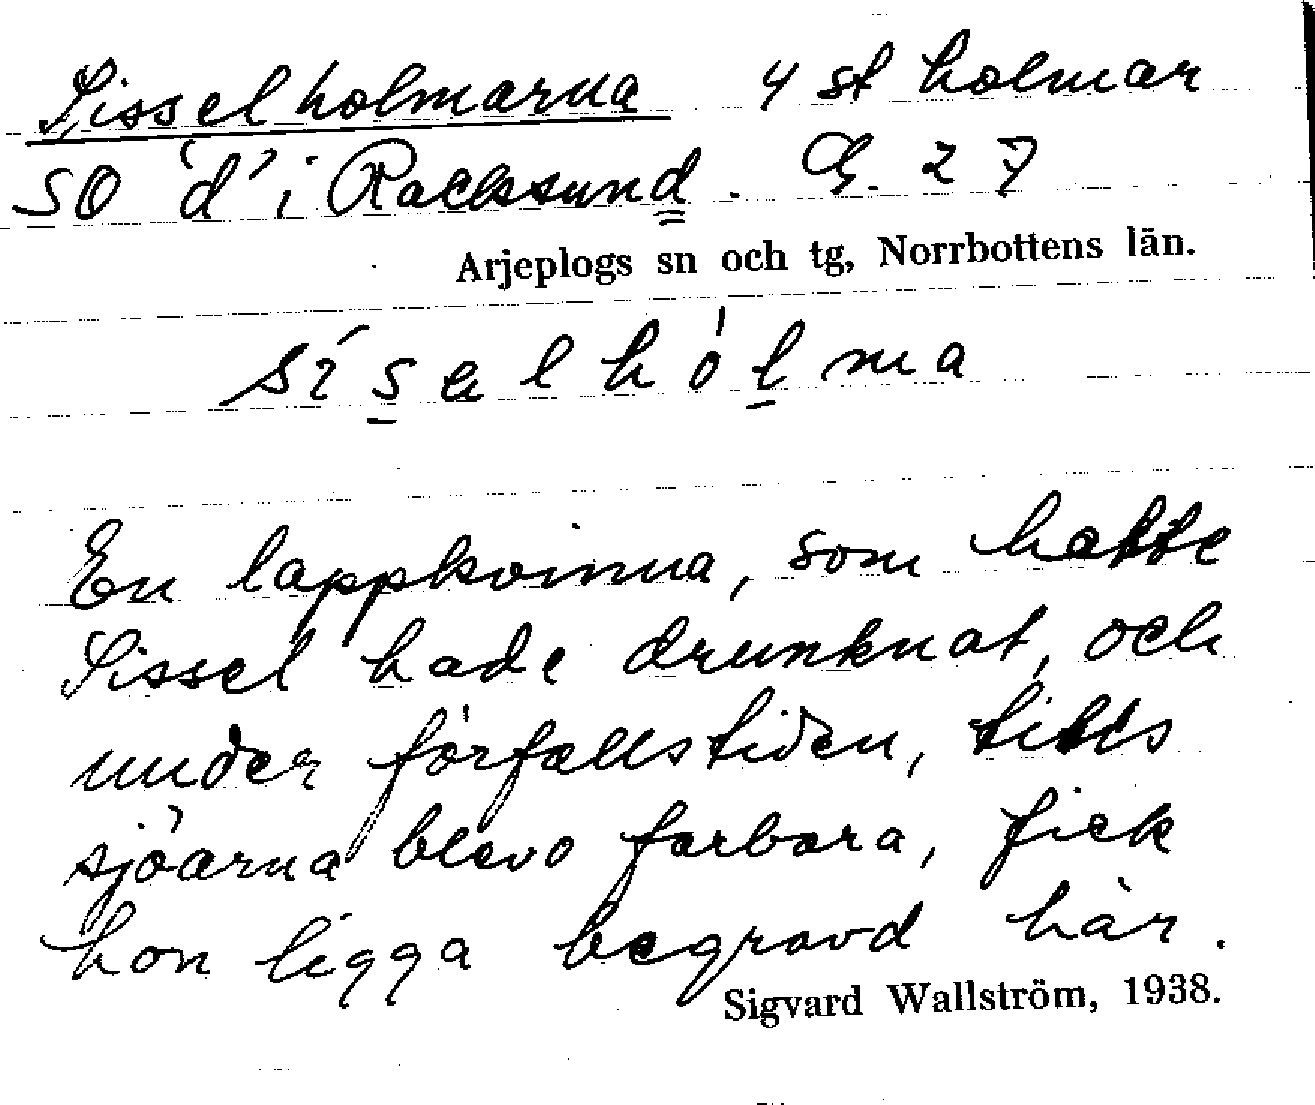 Sisselholmarna 4 st holmar
SO 'd' i Racksund. G. 27
Arjeplogs sn och tg, Norrbottens län.
síselhólma
En lappkvinna, som hette
Sissel hade drunknat, och
under förfallstiden, titts
sjöarna blevo farbara, fick
hon ligga begravd här.
Sigvard Wallström, 1938.